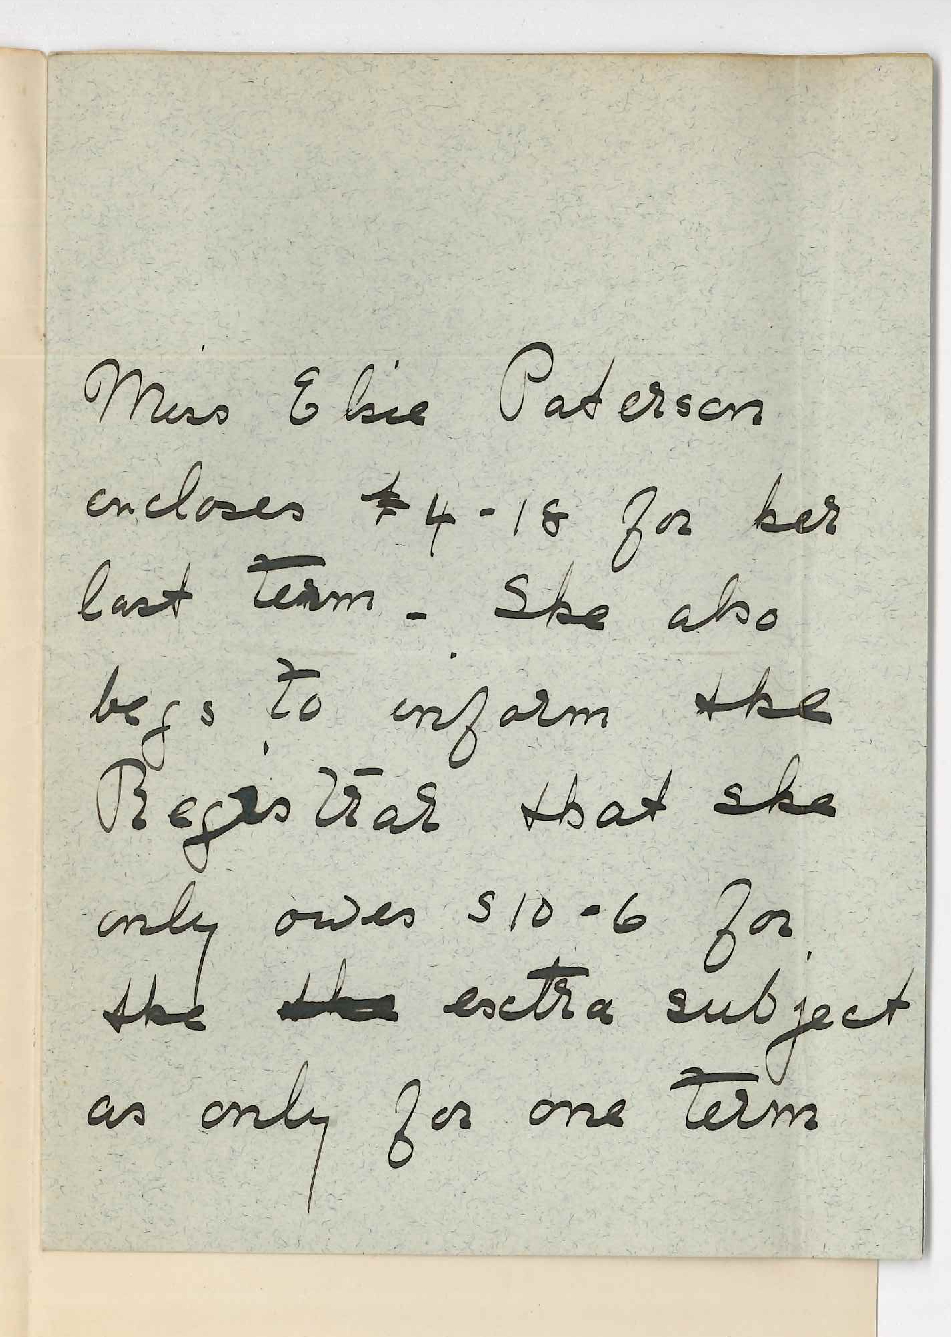 Miss Elsie Paterson
encloses £4-18 for her
last term - She also
begs to inform the
Registrar that she
only owes s10-6 for
the the extra subject
as only for one term